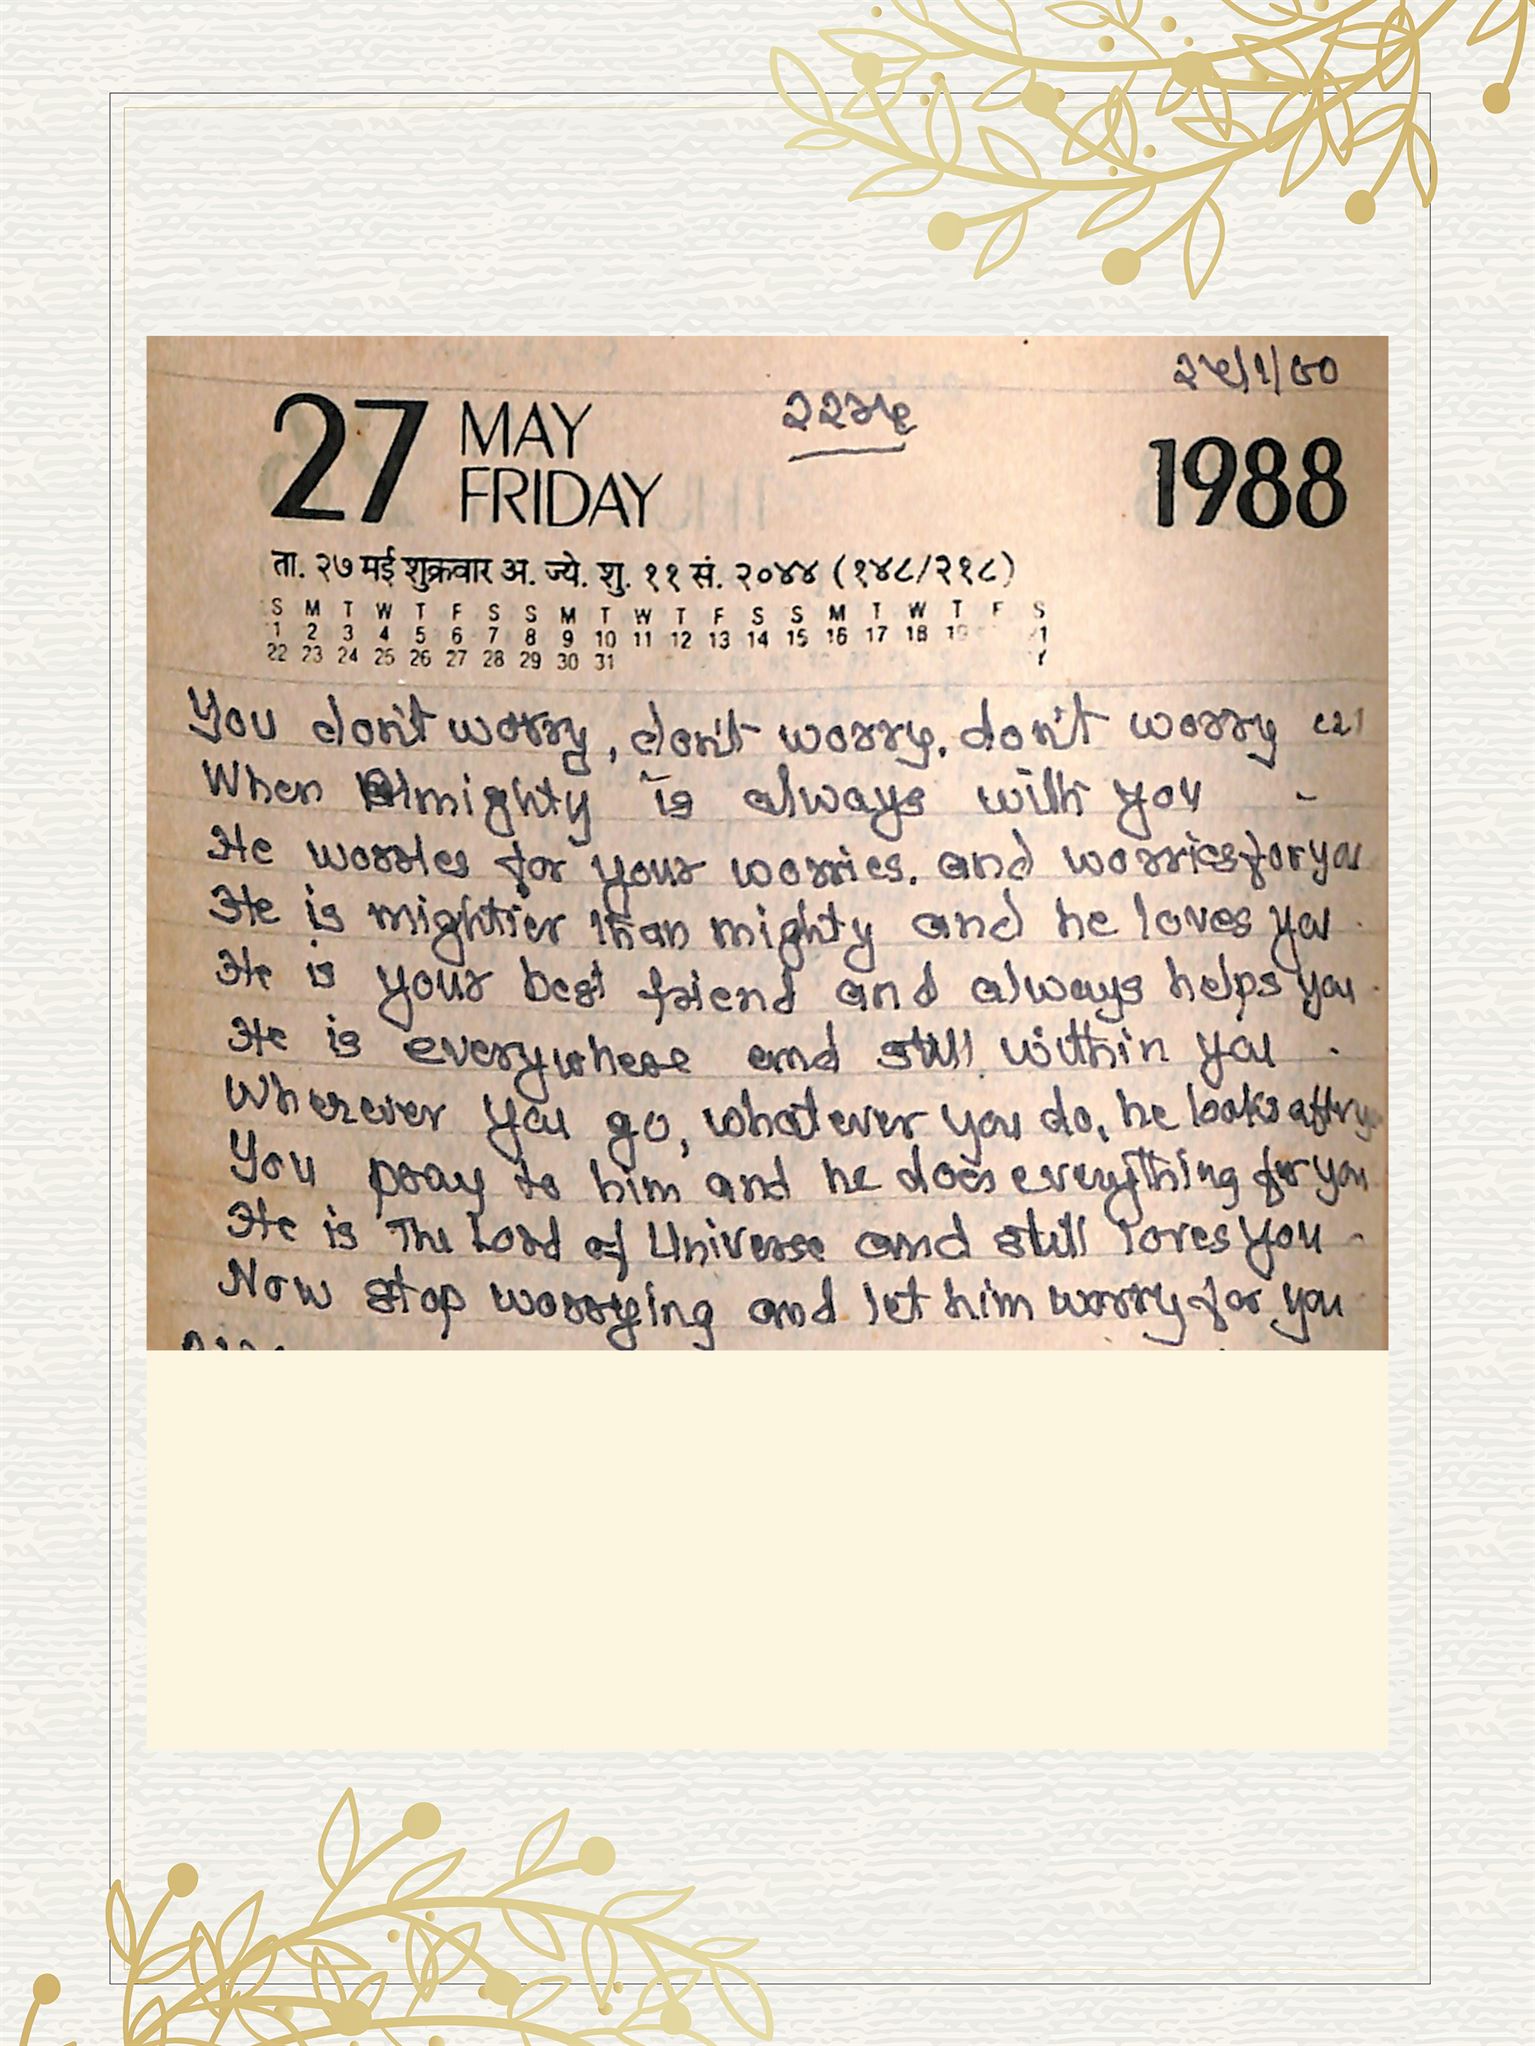 ૨૫/૧/૯૦
27 MAY FRIDAY 1988
ता. २७ मई शुक्रवार अ. ज्ये. शु. ११ सं. २०४४ (१४८/२१८)
S M T W T F S S M T W T F S S M T W T F S
1 2 3 4 5 6 7 8 9 10 11 12 13 14 15 16 17 18 19
22 23 24 25 26 27 28 29 30 31
You don't worry, don't worry, don't worry
When Almighty is always with you
He worries for your worries. and worries for you
He is mightier than mighty and he loves you.
He is your best friend and always helps you.
He is everywhere and still within you.
Wherever you go, whatever you do, he looks after
You pray to him and he does everything for you
He is The Lord of Universe and still loves you.
Now stop worrying and let him worry for you